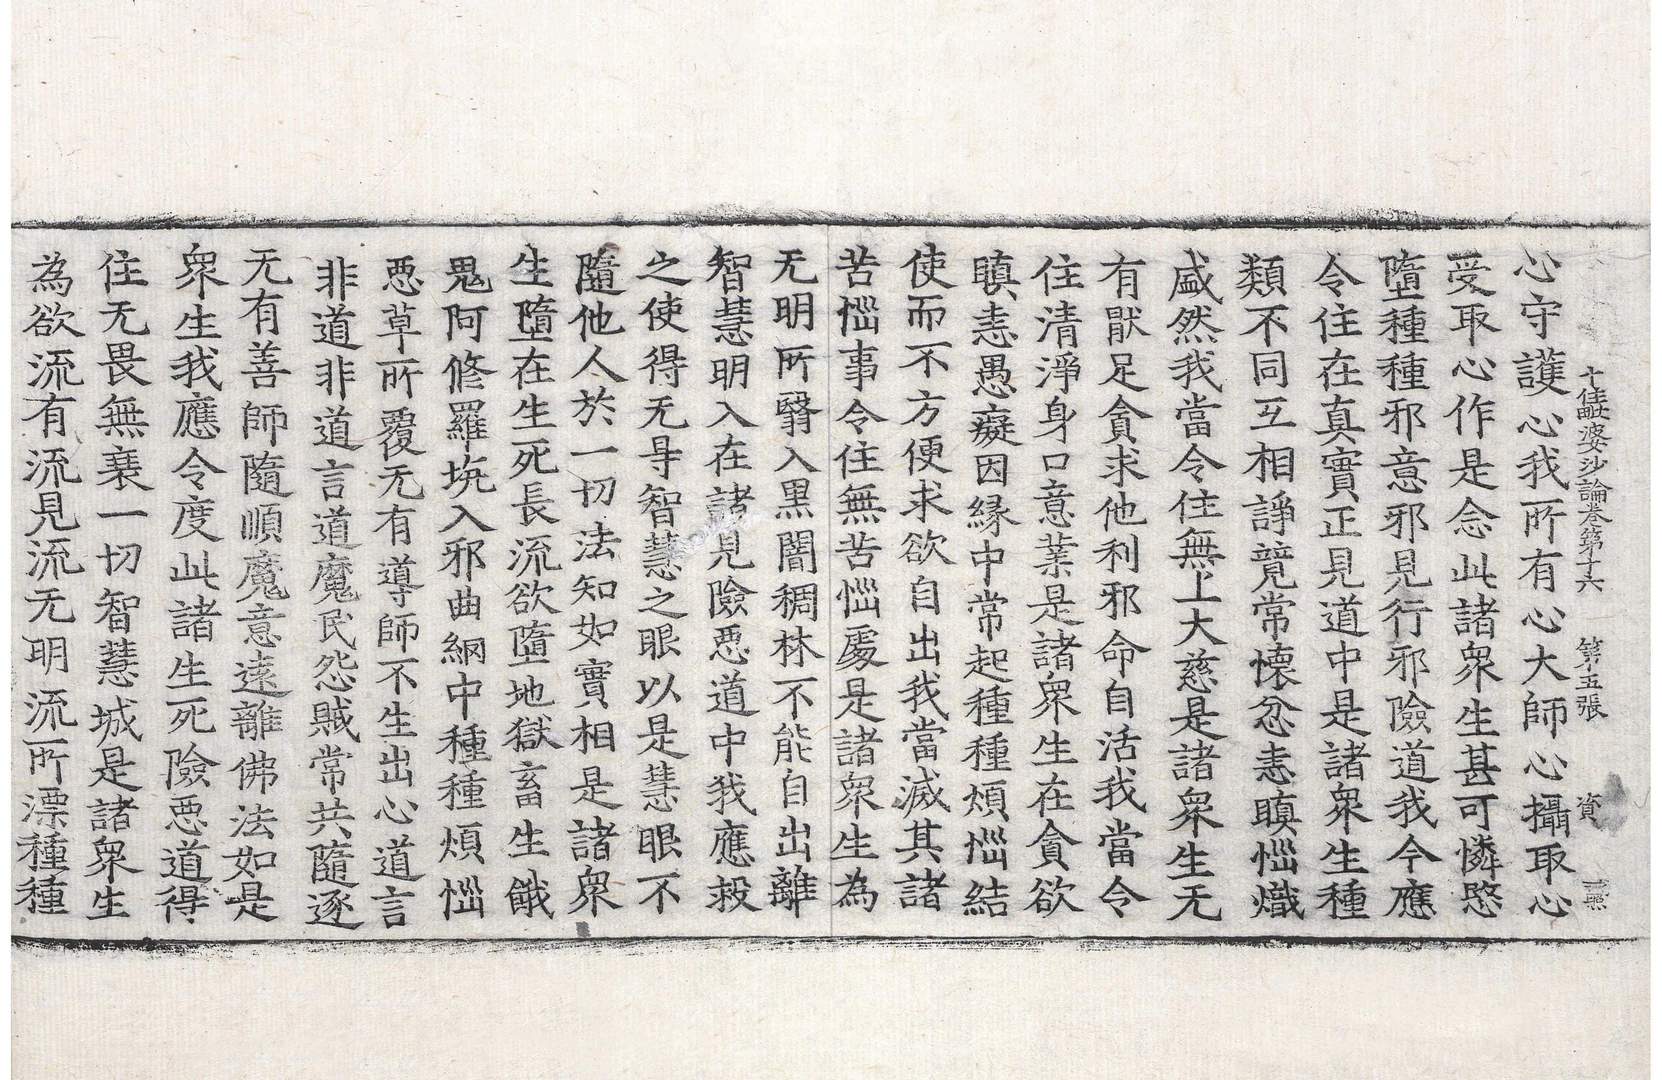 十住毗婆沙論卷第十六 第五張 資
心守護心我所有心大師心攝取心
受取心作是念此諸衆生甚可憐愍
墮種種邪意邪見行邪險道我今應
令住在真實正見道中是諸衆生種
類不同互相諍競常懷忿恚瞋惱熾
盛然我當令住無上大慈是諸衆生无
有猒足貪求他利邪命自活我當令
住清淨身口意業是諸衆生在貪欲
瞋恚愚癡因緣中常起種種煩惱結
使而不方便求欲自出我當滅其諸
苦惱事令住無苦惱處是諸衆生為
无明所翳入黑闇稠林不能自出離
智慧明入在諸見險惡道中我應救
之使得无㝵智慧之眼以是慧眼不
隨他人於一切法知如實相是諸衆
生墮在生死長流欲墮地獄畜生餓
鬼阿修羅坑入邪曲網中種種煩惱
惡草所覆无有導師不生出心道言
非道非道言道魔民怨賊常共隨逐
无有善師隨順魔意遠離佛法如是
衆生我應令度此諸生死險惡道得
住无畏無衰一切智慧城是諸衆生
為欲流有流見流无明流所漂種種